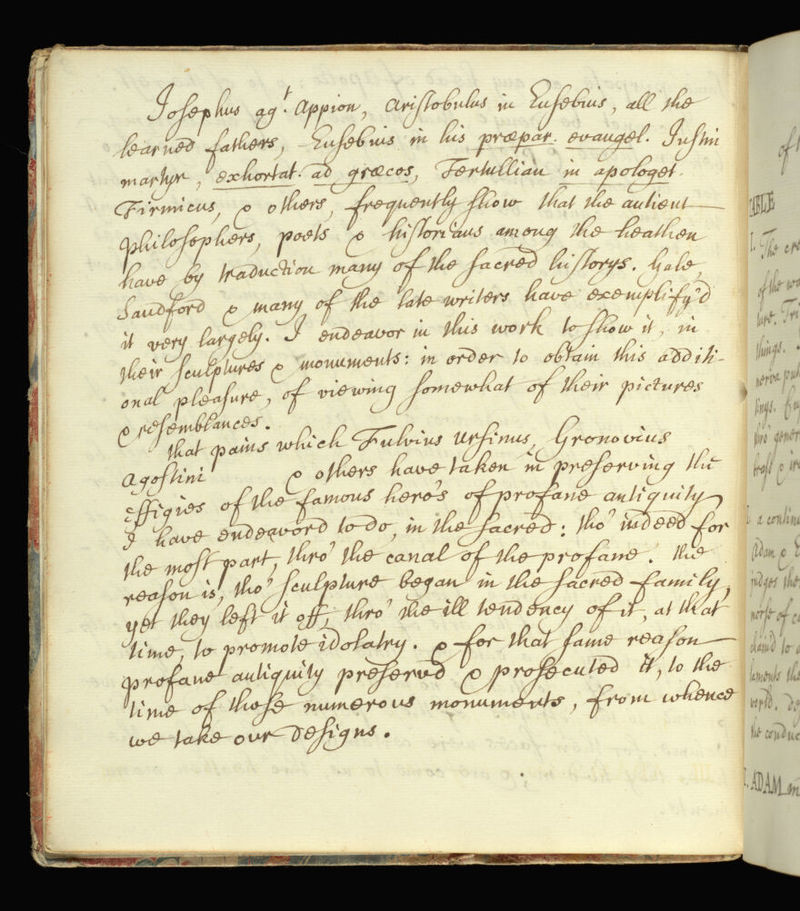 Josephus agt. Appion, Aristobulus in Eusebius, all the
learned fathers, Eusebius in his præpar. evangel. Justin
martyr, exhortat. ad græcos, Tertullian in apologet.
Firmicus, & others, frequently show that the antient
philosophers, poets & historians among the heathen
have by traduction many of the sacred historys. Gale,
Sandford & many of the late writers have exemplify'd
it very largely. I endeavor in this work to show it, in
their sculptures & monuments: in order to obtain this additi-
onal pleasure, of viewing somewhat of their pictures
& resemblances.
that pains which Fulvius Ursinus, Gronovius
Agostini & others have taken in preserving the
effigies of the famous hero's of profane antiquity
I have endeavord to do, in the sacred: tho' indeed for
the most part, thro' the canal of the profane. the
reason is, tho' sculpture began in the sacred family,
yet they left it off, thro' the ill tendency of it, at that
time, to promote idolatry. & for that same reason
profane antiquity preserved & prosecuted it, to the
time of those numerous monuments, from whence
we take our designs.
of
TABLE
I. The
of the
things.
a
Adam &
judges the
laments the
world.
the
ADAM